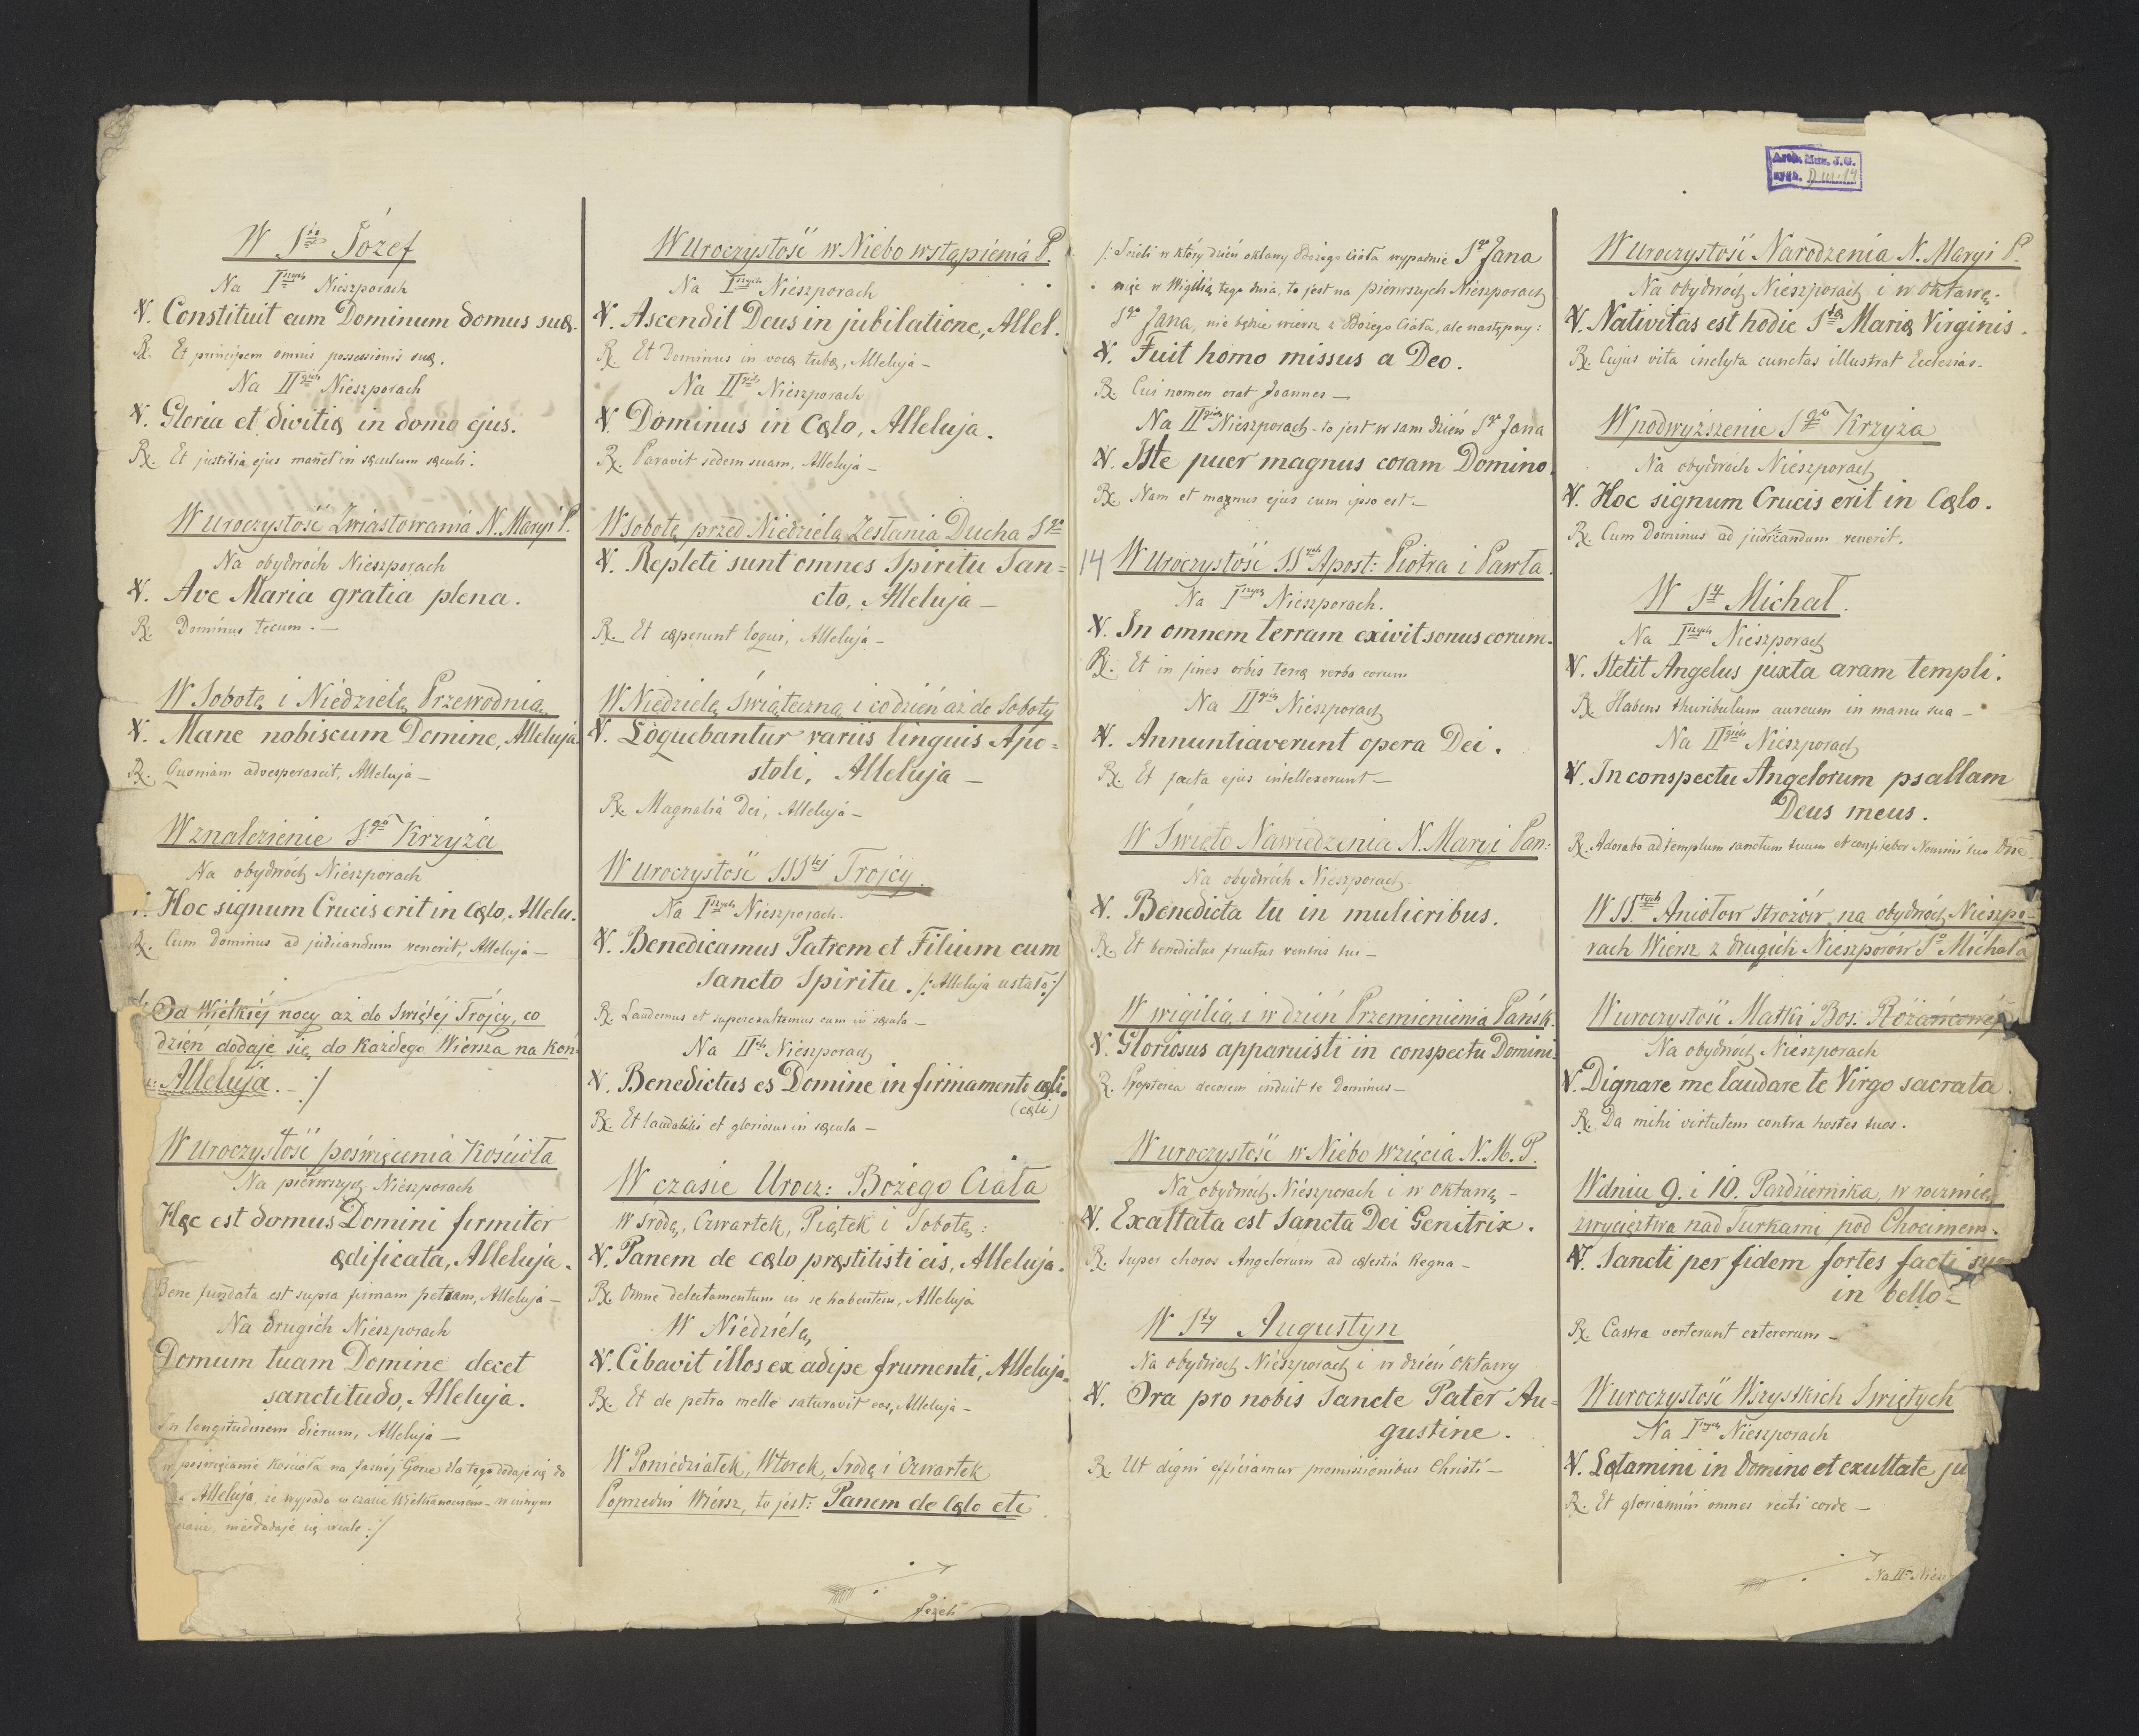 W Sty Józef
Na Iszych Nieszporach
℣. Constituit eum Dominum domus suę.
℟. Et principem omnis possessionis suę.
Na IIgich Nieszporach
℣. Gloria et divitię in domo ejus.
℟. Et justitia ejus manet in sęculum sęculi.
W Uroczystość Zwiastowania N. Maryi P.
Na obydwóch Nieszporach
℣. Ave Maria gratia plena.
℟. Dominus tecum. —
W Sobotę i Niedzielę Przewodnią
℣. Mane nobiscum Domine, Alleluja.
℟. Quoniam advesperascit, Alleluja —
W znalezienie Sgo Krzyża
Na obydwóch Nieszporach
Hoc signum Crucis erit in Cęlo, Allelu.
℟. Cum Dominus ad judicandum venerit, Alleluja —
Od Wielkiéj nocy aż do Świętéj Trójcy, co
dzień dodaje się do każdego Wiersza na kon:
Alleluja. — :/
W Uroczystość poświęcenia Kościoła
Na pierwszych Nieszporach
Hęc est domus Domini firmiter
ędificata, Alleluja.
Bene fundata est supra firmam petram, Alleluja —
Na drugich Nieszporach
Domum tuam Domine decet
sanctitudo, Alleluja.
In longitudinem dierum, Alleluja —
poświęcanie Kościoła na Jasnéj Górze dla tego dodaje się do
Alleluja, że wypada w czasie Wielkanocném - w innym
czasie, niedodaje się wcale :/
W Uroczystość w Niebo wstąpienia P.
Na Iszych Nieszporach
℣. Ascendit Deus in jubilatione, Allel.
℟. Et Dominus in voce tubę, Alleluja —
Na IIgich Nieszporach
℣. Dominus in Cęlo, Alleluja.
℟. Paravit sedem suam, Alleluja —
W Sobotę przed Niedzielą Zesłania Ducha Sgo
℣. Repleti sunt omnes Spiritu San=
cto, Alleluja —
℟. Et cęperunt loqui, Alleluja —
W Niedzielę Świąteczną i codzień aż do Soboty
℣. Loquebantur variis linguis Apo=
stoli, Alleluja —
℟. Magnalia Dei, Alleluja —
W Uroczystość SSStej Trójcy
Na Iszych Nieszporach.
℣. Benedicamus Patrem et Filium cum
Sancto Spiritu. /: Alleluja ustało :/
℟. Laudemus et superexaltemus eum in sęcula —
Na IIch Nieszporach
℣. Benedictus es Domine in firmamento cęli.
(cęli)
℟. Et laudabilis et gloriosus in sęcula —
W czasie Urocz: Bożego Ciała
W Srodę, Czwartek, Piątek i Sobotę:
℣. Panem de cęlo pręstitisti eis, Alleluja.
℟. Omne delectamentum in se habentem, Alleluja
W Niedzielę
℣. Cibavit illos ex adipe frumenti, Alleluja.
℟. Et de petra melle saturavit eos, Alleluja —
W Poniedziałek, Wtorek, Srodę i Czwartek
Poprzedni Wiersz, to jest: Panem de Cęlo etc
Jeżeli
/: Jeżeli w który dzień oktawy Bożego Ciała wypadnie Sgo Jana
w Wigilią tego dnia, to jest na pierwszych Nieszporach
Sgo Jana, nie będzie wiersz z Bożego Ciała, ale następny:
℣. Fuit homo missus a Deo.
℟. Cui nomen erat Joannes —
Na IIgich Nieszporach - to jest w sam dzień Sgo Jana
℣. Iste puer magnus coram Domino.
℟. Nam et magnus ejus cum ipso est —
14 W Uroczystość SSych Apost: Piotra i Pawła.
Na Iszych Nieszporach.
℣. In omnem terram exivit sonus eorum.
℟. Et in fines orbis terrę verba eorum
Na IIgich Nieszporach
℣. Annuntiaverunt opera Dei.
℟. Et facta ejus intellexerunt —
W Święto Nawiedzenia N. Maryi Pan:
Na obydwóch Nieszporach
℣. Benedicta tu in mulieribus.
℟. Et benedictus fructus ventris tui —
W wigilią i w dzień Przemienienia Pańsk.
℣. Gloriosus apparuisti in conspectu Domini.
℟. Propterea decorem induit te Dominus —
W uroczystość w Niebo wzięcia N. M. P.
Na obydwóch Nieszporach i w oktawę -
℣. Exaltata est Sancta Dei Genitrix.
℟. Super choros Angelorum ad cęlestia Regna —
W Sty Augustyn
Na obydwóch Nieszporach i w dzień oktawy
℣. Ora pro nobis Sancte Pater Au=
gustine.
℟. Ut digni efficiamur promissionibus Christi —
Arch. Muz. J.G.
sygn. D
W Uroczystość Narodzenia N. Maryi P.
Na obydwóch Nieszporach i w oktawę.
℣. Nativitas est hodie Stę Marię Virginis.
℟. Cujus vita inclyta cunctas illustrat Ecclesias.
W podwyższenie Sgo Krzyża
Na obydwóch Nieszporach
℣. Hoc signum Crucis erit in Cęlo.
℟. Cum Dominus ad judicandum venerit.
W Sty Michał.
Na Iszych Nieszporach
℣. Stetit Angelus juxta aram templi.
℟. Habens thuribulum aureum in manu sua —
Na IIgich Nieszporach
℣. In conspectu Angelorum psallam
Deus meus.
℟. Adorabo ad templum sanctum tuum et confitebor Nomini tuo Dne
W SStych Aniołow Stróżów na obydwóch Nieszpo-
rach Wiersz z drugich Nieszporów So Michała
W uroczystość Matki Bos. Różańcowéj
Na obydwóch Nieszporach
℣. Dignare me laudare te Virgo sacrata.
℟. Da mihi virtutem contra hostes tuos.
W dniu 9. i 10. Października, w rocznicę
zwycięztwa nad Turkami pod Chocimem.
℣. Sancti per fidem fortes facti su
in bello —
℟. Castra verterunt exterorum —
W uroczystość Wszystkich Świętych
Na Iszych Nieszporach
℣. Lętamini in Domino et exultate ju
℟. Et gloriamini omnes recti corde —
Na II Niesz